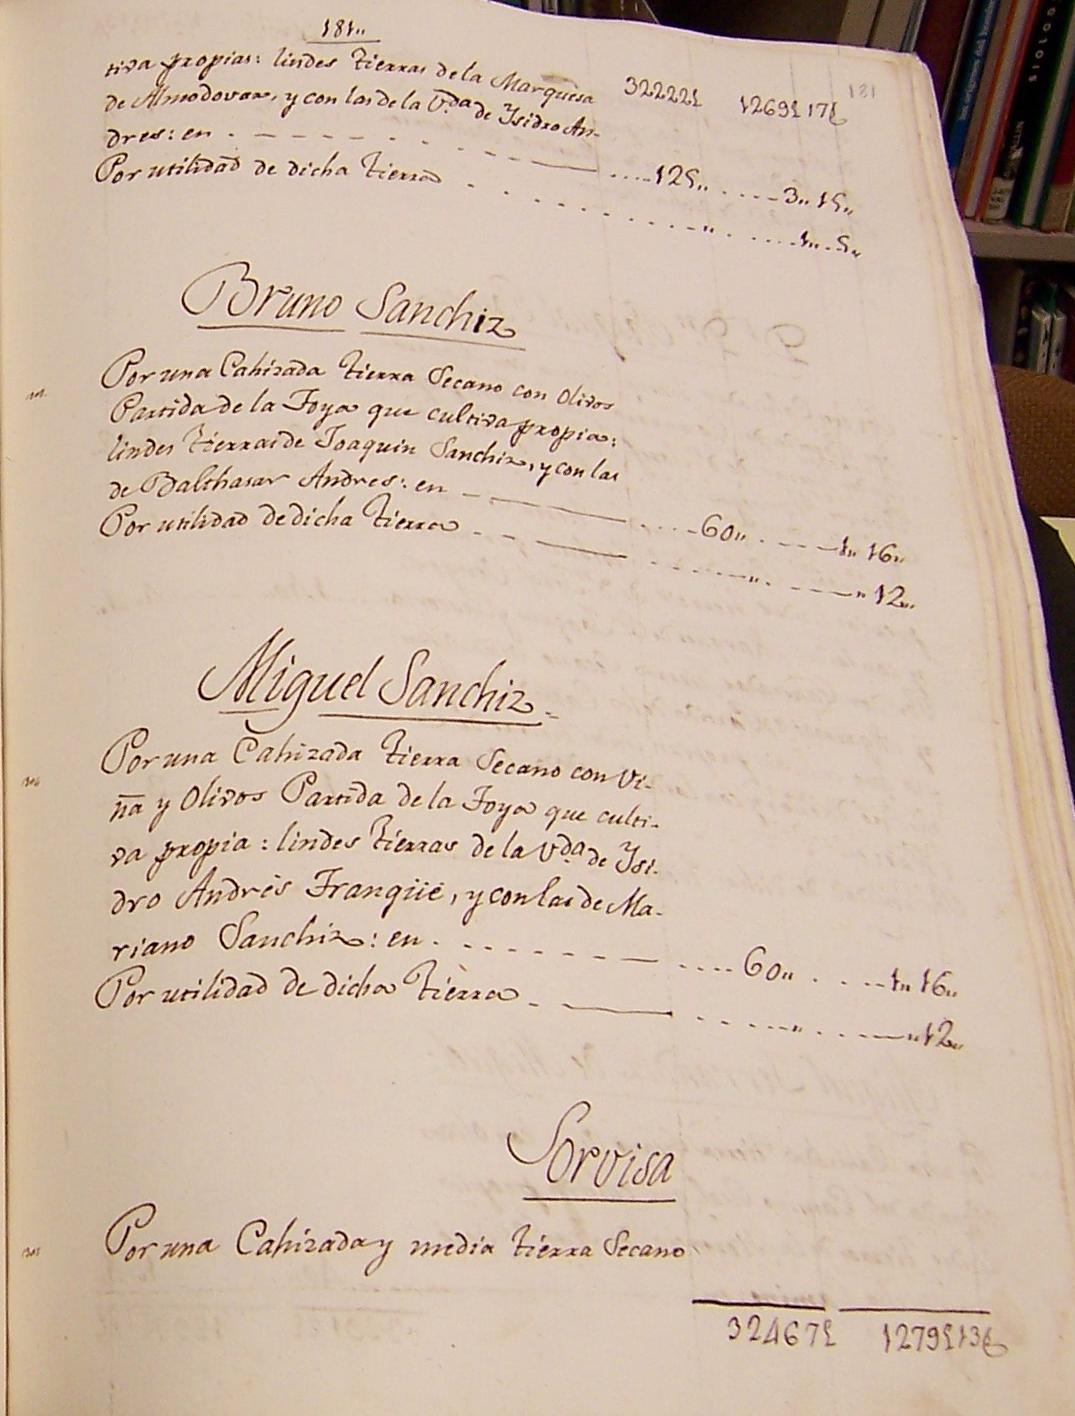 181„
181
tiva propias: lindes tierras de la Marquesa 32222£ 1269£17§
de Almodovar, y con las de la V.da de Ysidro An-
dres: en 125„ 3„ 15„
Por utilidad de dicha tierra „ 1„ 5„
Bruno Sanchiz
Por una Cahizada tierra Secano con Olivos
Partida de la Foya que cultiva propia:
lindes tierras de Joaquin Sanchiz, y con las
de Balthasar Andres: en 60„ 1„ 16„
Por utilidad de dicha tierra „ „ 12„
Miguel Sanchiz
Por una Cahizada tierra Secano con Vi-
ña y Olivos Partida de la Foya que culti-
va propia: lindes tierras de la V.da de Ysi-
dro Andrés Franqüé, y con las de Ma-
riano Sanchiz: en 60„ 1„ 16„
Por utilidad de dicha tierra „ „ 12„
Sorvisa
Por una Cahizada y media tierra Secano
32467£ 1279£13§